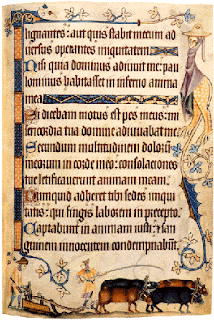 lignantes: aut quis stabit mecum ad
uersus operantes iniquitatem
Nisi quia dominus adiuuit me: pau
lominus habitasset in inferno anima
mea
Si dicebam motus est pes meus: mi
sericordia tua domine adiuuabat me
Secundum multitudinem dolorū
meorum in corde meo: consolaciones
tue letificauerunt animam meam
Numquid adheret tibi sedes iniqui
tatis: qui fingis laborem in precepto
Captabunt in animam iusti: & san
guinem innocentem condempnabūt